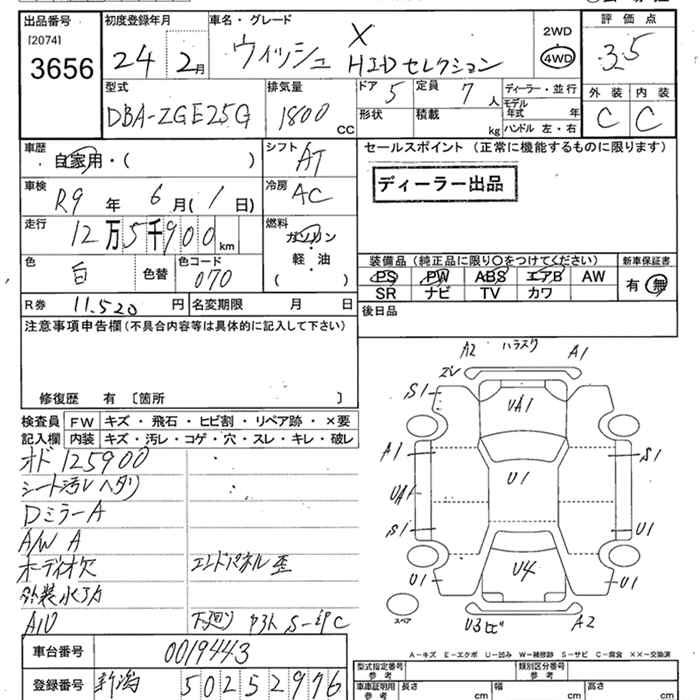 出品番号 初度登録年月 車名・グレード 評価点
[2074] 24 2月 ウィッシュ X HIDセレクション 2WD 4WD 3.5
3656
型式 排気量 ドア 5 定員 7人 ディーラー・並行 外装 内装
DBA-ZGE25G 1800 CC 形状 積載 kg モデル年式 年 C C
ハンドル 左・右
車歴 シフト セールスポイント（正常に機能するものに限ります）
・自家用・( ) AT
ディーラー出品
車検 冷房
R9年 6月( 1日) AC
走行 燃料
12万5千900km ガソリン・軽・油 ( )
色 色替 色コード 装備品（純正品に限り○をつけてください） 新車保証書
白 070 PS PW ABS エアB AW 有・無
SR ナビ TV カワ
R券 11.520円 名変期限 月 日 後日品
注意事項申告欄（不具合内容等は具体的に記入して下さい）
A2 A1
修復歴 有 〔箇所 〕
S1 UA1
検査員 FW キズ・飛石・ヒビ割・リペア跡・×要
記入欄 内装 キズ・汚レ・コゲ・穴・スレ・キレ・破レ
オド 125900
A1 U1 S1
シート汚レ ヘタリ
UA1
DミラーA
S1 U1
A/W A
オーディオ欠 エンドパネル歪
U1 U4 U1
外装水アカ
A10 下廻り
スペア U3 A2
A-キズ E-エクボ U-凹み W-補修跡 S-サビ C-腐食 ××-交換済
車台番号 0019443
型式指定番号参考 類別区分番号参考
登録番号 新潟 502 52976
車庫証明用参考 長さ cm 幅 cm 高さ cm